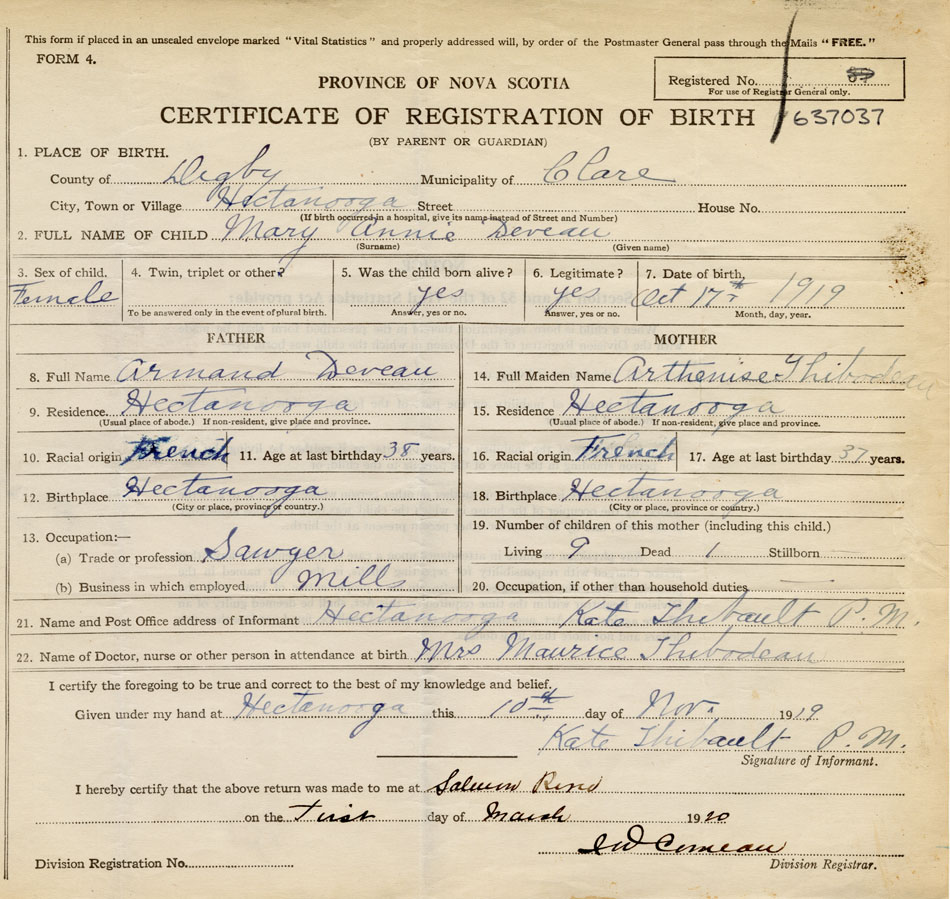 This form if placed in an unsealed envelope marked "Vital Statistics" and properly addressed will, by order of the Postmaster General pass through the Mails "FREE."
FORM 4.
PROVINCE OF NOVA SCOTIA
Registered No.
For use of Registrar General only.
CERTIFICATE OF REGISTRATION OF BIRTH
637037
(BY PARENT OR GUARDIAN)
1. PLACE OF BIRTH.
County of Digby Municipality of Clare
City, Town or Village Hectanooga Street House No.
(If birth occurred in a hospital, give its name instead of Street and Number)
2. FULL NAME OF CHILD Mary Annie Deveau
(Surname) (Given name)
3. Sex of child. 4. Twin, triplet or other? 5. Was the child born alive? 6. Legitimate? 7. Date of birth,
Female yes yes Oct 17th 1919
To be answered only in the event of plural birth. Answer, yes or no. Answer, yes or no. Month, day, year.
FATHER
8. Full Name Armand Deveau
9. Residence. Hectanooga
(Usual place of abode.) If non-resident, give place and province.
10. Racial origin French 11. Age at last birthday 38 years.
12. Birthplace Hectanooga
(City or place, province or country.)
13. Occupation:—
(a) Trade or profession Sawyer
(b) Business in which employed Mills
MOTHER
14. Full Maiden Name Arthenise Thibodeau
15. Residence Hectanooga
(Usual place of abode.) If non-resident, give place and province.
16. Racial origin French 17. Age at last birthday 37 years.
18. Birthplace Hectanooga
(City or place, province or country.)
19. Number of children of this mother (including this child.)
Living 9 Dead 1 Stillborn
20. Occupation, if other than household duties
21. Name and Post Office address of Informant Hectanooga Kate Thibault P. M.
22. Name of Doctor, nurse or other person in attendance at birth Mrs Maurice Thibodeau
I certify the foregoing to be true and correct to the best of my knowledge and belief.
Given under my hand at Hectanooga this 10th day of Nov. 1919
Kate Thibault P. M.
Signature of Informant.
I hereby certify that the above return was made to me at Salmon
on the First day of March 1920
Comeau
Division Registration No. Division Registrar.